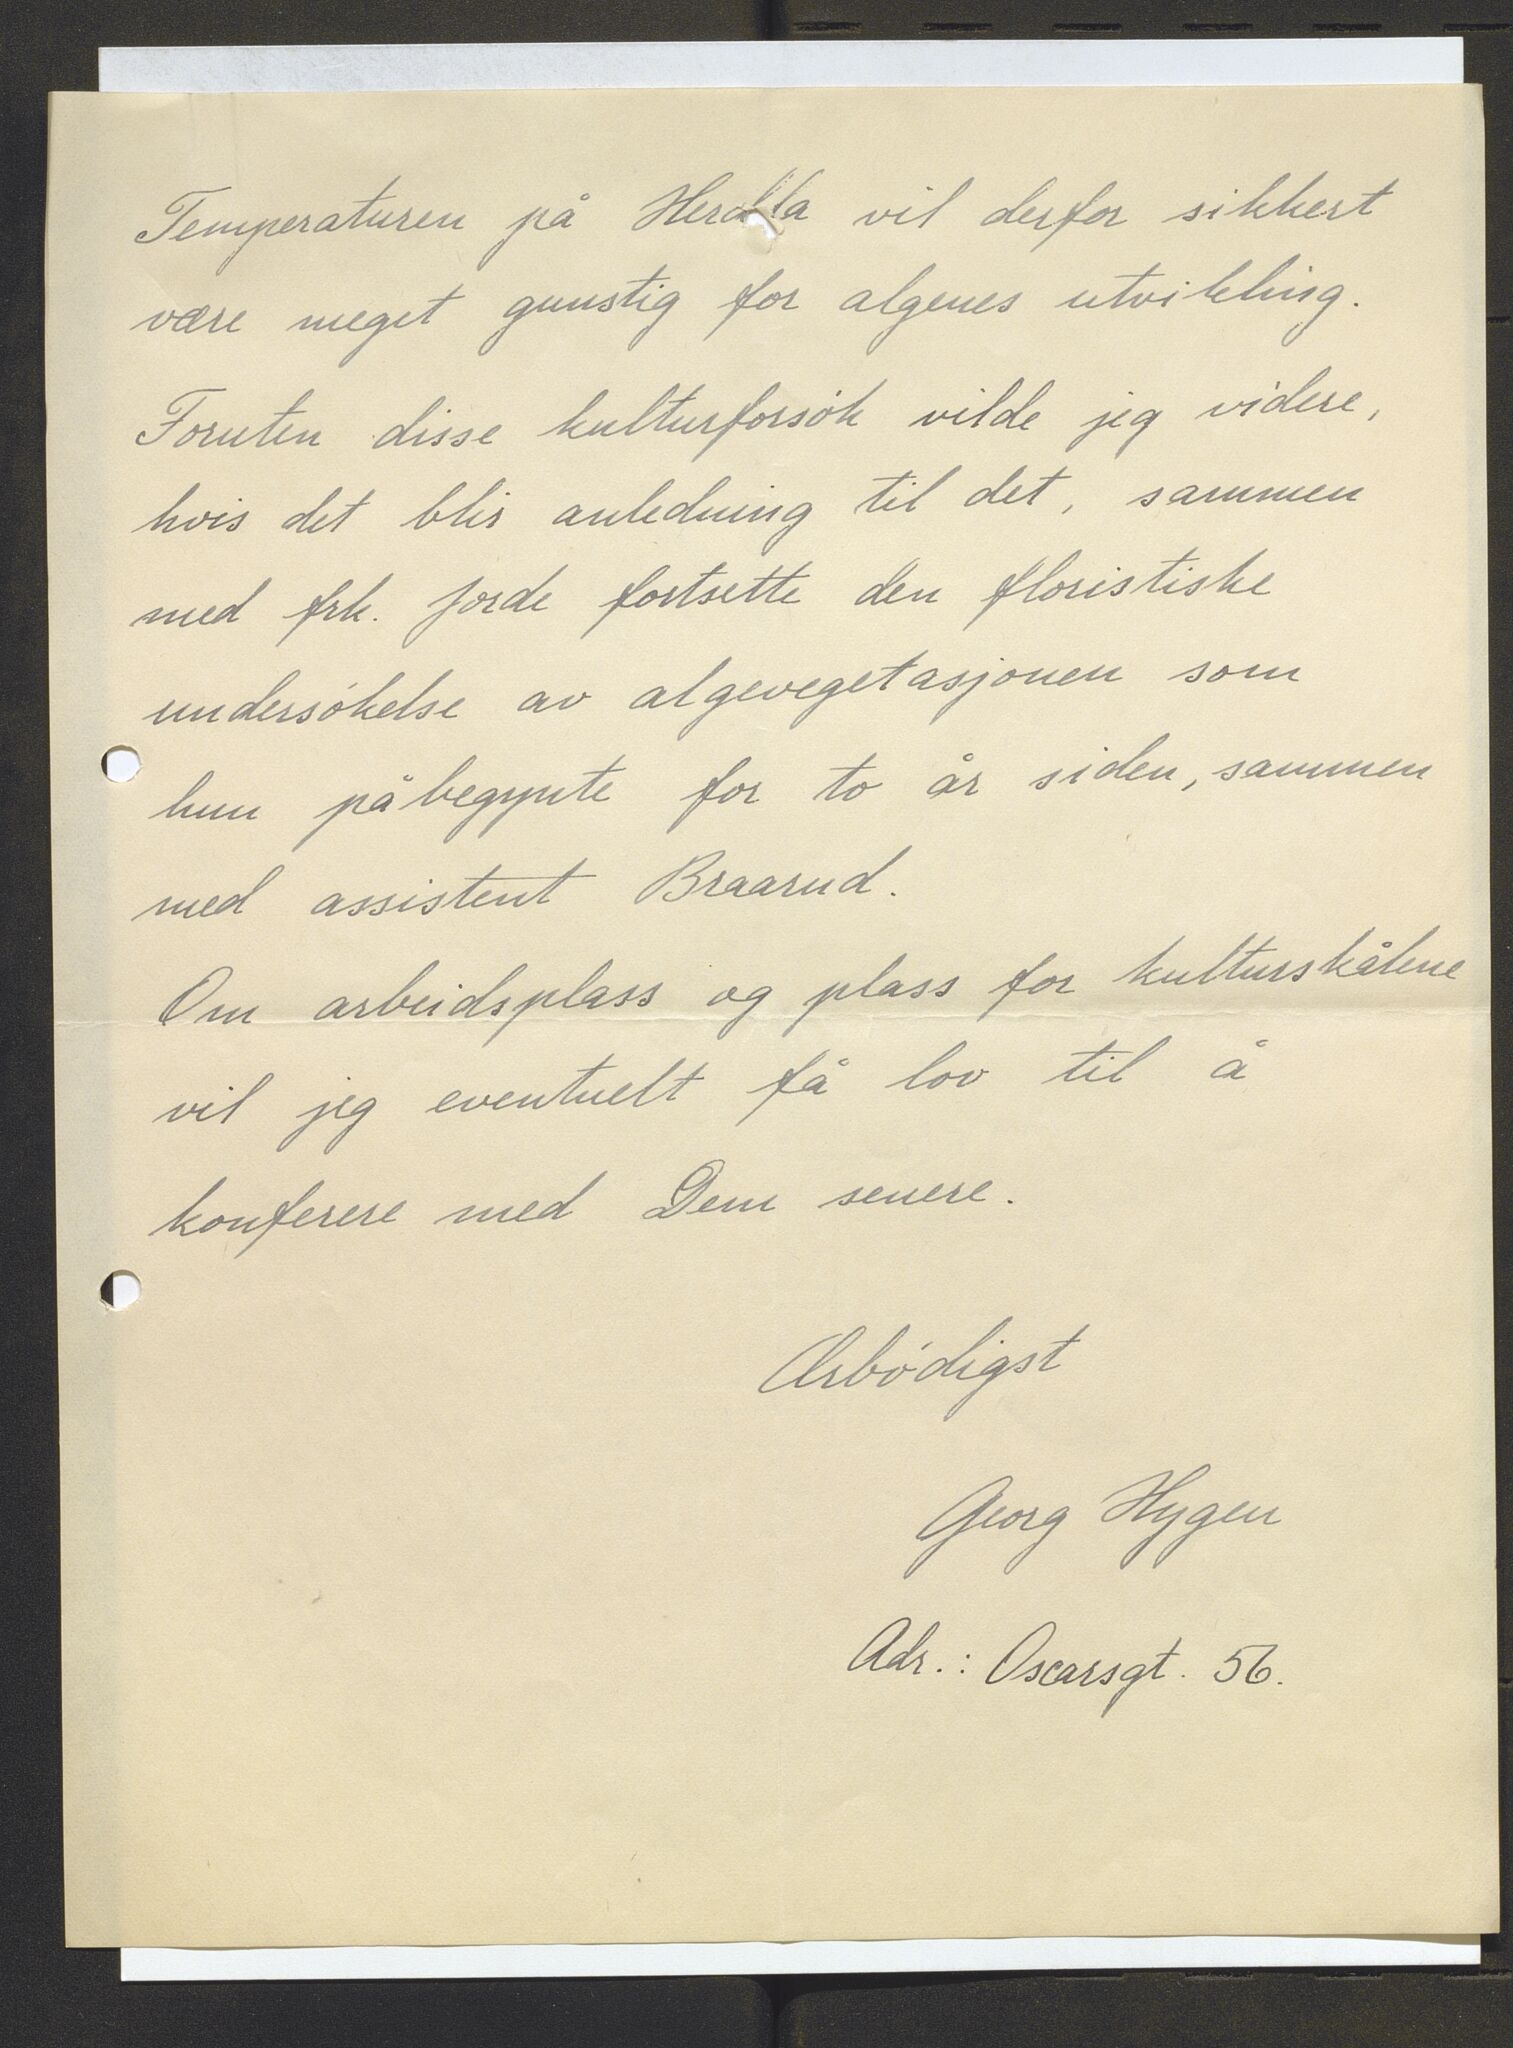 Temperaturen på Herdla vil derfor sikkert
være meget gunstig for algenes utvikling.
Foruten disse kulturforsök vilde jeg videre,
hvis det blir anledning til det, sammen
med frk. Jorde fortsette den floristiske
undersökelse av algevegetasjonen som
hun påbegynte for to år siden, sammen
med assistent Braarud.
Om arbeidsplass og plass for kulturskålene
vil jeg eventuelt få lov til å
konferere med Dem senere.
Ærbödigst
Georg Hygen
Adr.: Oscarsgt. 56.